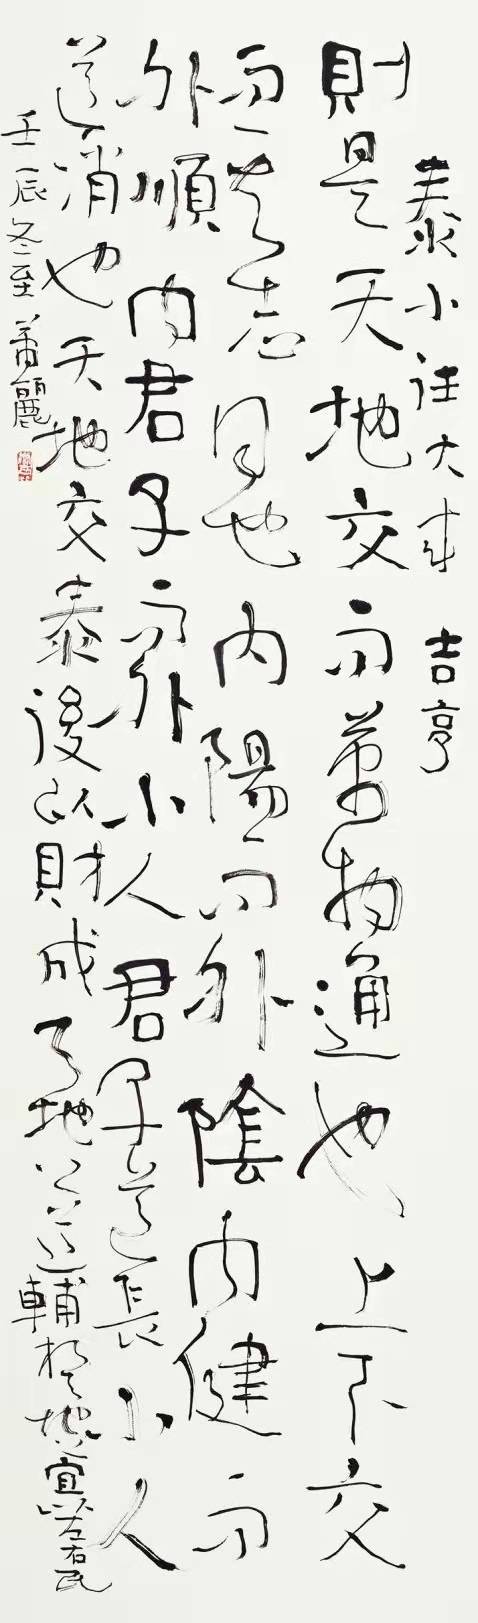 泰小往大来吉亨
則是天地交而萬物通也上下交
而其志同也内陽而外陰内健而
外順内君子而外小人君子道長小人
道消也天地交泰後以財成天地之道輔相地之宜以左右民
壬辰冬至蕭麗